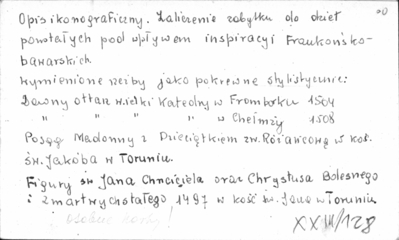 Opis ikonograficzny. Zaliczenie zabytku do dzieł
powstałych pod wpływem inspiracji Frankońsko-
bawarskich
wymienione rzeźby jako pokrewne stylistycznie:
Dawny ołtarz wielki Katedry w Fromborku 1504
" " " " w Chełmży 1508
Posąg Madonny z Dzieciątkiem zw. Różańcową w koś.
św. Jakóba w Toruniu.
Figury św Jana Chrzciciela oraz Chrystusa Bolesnego
i zmartwychstałego 1497 w kość św. Jana w Toruniu
osobne karty!
XXIII/128